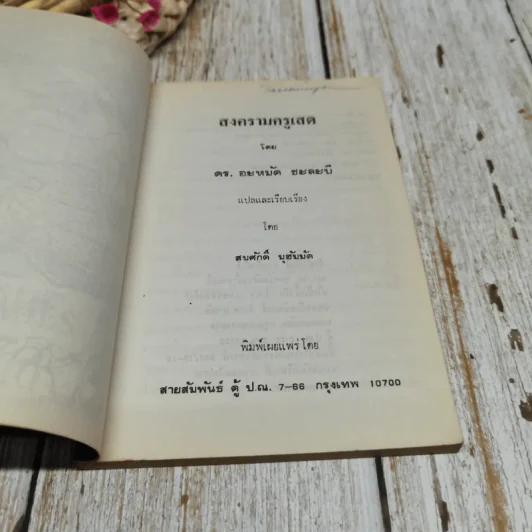 สงครามครูเสด
โดย
ดร. อะหมัด ชะละบี
แปลและเรียบเรียง
โดย
สมศักดิ์ มุฮัมมัด
พิมพ์เผยแพร่โดย
สายสัมพันธ์ ตู้ ป.ณ. 7-66 กรุงเทพ 10700